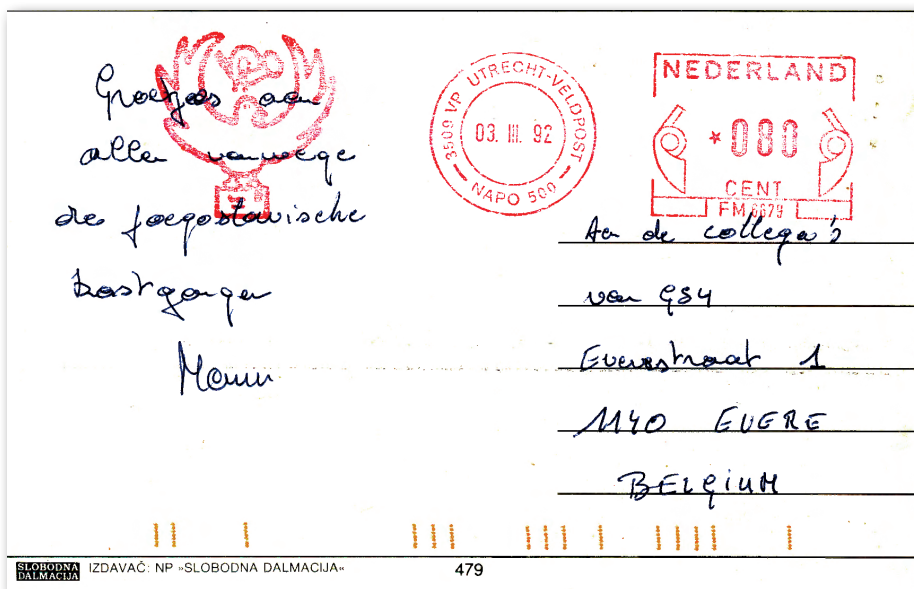 Groetjes aan
allen vanwege
de joegoslavische
kostganger
3509 VP UTRECHT-VELDPOST
03. III. 92
NAPO 500
NEDERLAND
*080
CENT
FM 6679
Aan de collega's
van GS4
Everestraat 1
1140 EVERE
BELGIUM
SLOBODNA
DALMACIJA
IZDAVAČ: NP »SLOBODNA DALMACIJA«
479